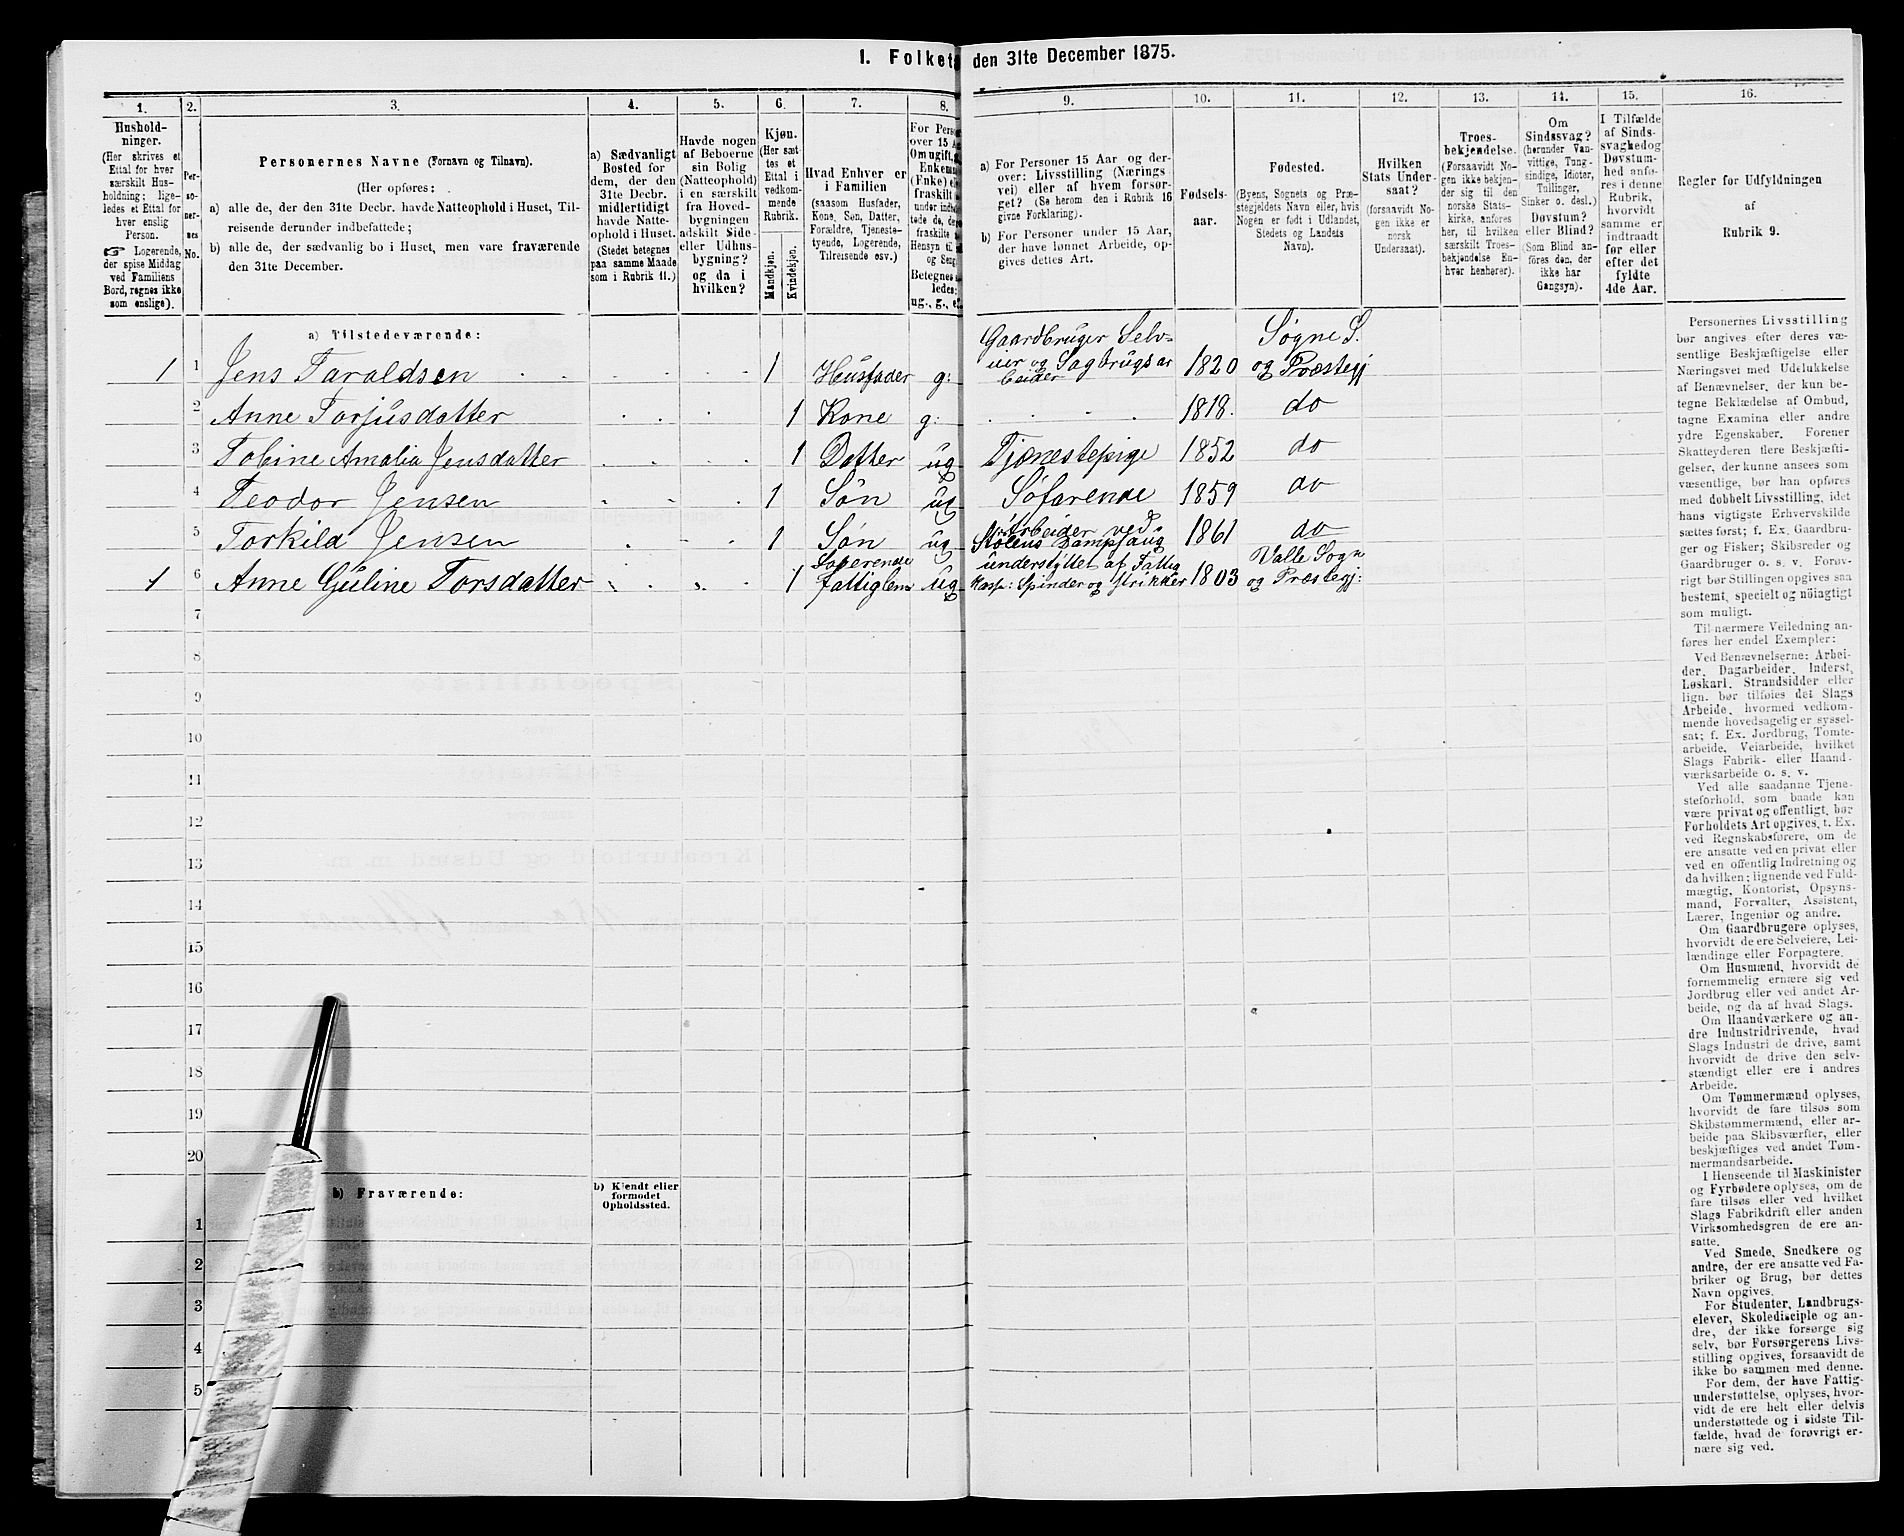 1. Folket den 31te December 1875.
1. 2. 3. 4. 5. 6. 7. 8. 9. 10. 11. 12. 13. 14. 15. 16.
Hushold-
ninger.
(Her skrives et
Ettal for hver
særskilt Hus-
holdning; lige-
ledes et Ettal for
hver enslig
Person.
☞ Logerende,
der spise Middag
ved Familiens
Bord, regnes ikke
som enslige).
Per-
so-
ner-
nes
No.
Personernes Navne (Fornavn og Tilnavn).
(Her opføres:
a) alle de, der den 31te Decbr. havde Natteophold i Huset, Til-
reisende derunder indbefattede;
b) alle de, der sædvanlig bo i Huset, men vare fraværende
den 31te December.
a) Sædvanligt
Bosted for
dem, der den
31te Decbr.
midlertidigt
havde Natte-
ophold i Huset.
(Stedet betegnes
paa samme Maade
som i Rubrik 11.)
Havde nogen
af Beboerne
sin Bolig
(Natteophold)
i en særskilt
fra Hoved-
bygningen
adskilt Side-
eller Udhus-
bygning?
og da i
hvilken?
Kjøn.
(Her sæt-
tes et
Ettal i
vedkom-
mende
Rubrik.
Mandkjøn.
Kvindekjøn.
Hvad Enhver er
i Familien
(saasom Husfader,
Kone, Søn, Datter,
Forældre, Tjeneste-
tyende, Logerende,
Tilreisende osv.)
For Perso
over 15 A
Om ugift, g
Enkem
(Enke) el
fraskilt
under indb
tede da, de
fraskilte
Hensyn til
og Seng
Betegnes s
ledes:
ug., g., e
a) For Personer 15 Aar og der-
over: Livsstilling (Nærings-
vei) eller af hvem forsør-
get? (Se herom den i Rubrik 16
givne Forklaring).
b) For Personer under 15 Aar,
der have lønnet Arbeide, op-
gives dettes Art.
Fødsels-
aar.
Fødested.
(Byens, Sognets og Præ-
stegjeldets Navn eller, hvis
Nogen er født i Udlandet,
Stedets og Landets
Navn).
Hvilken
Stats Under-
saat?
(forsaavidt No-
gen ikke er
norsk
Undersaat).
Troes-
bekjendelse.
(Forsaavidt No-
gen ikke bekjen-
der sig til den
norske Stats-
kirke, anføres
her, til hvilken
særskilt Troes-
bekjendelse En-
hver henhører).
Om
Sindssvag?
(herunder Van-
vittige, Tung-
sindige, Idioter,
Tullinger,
Sinker o. desl.)
Døvstum?
eller Blind?
(Som Blind an-
føres den, der
ikke har
Gangsyn).
I Tilfælde
af Sinds-
svaghed og
Døvstum-
hed anfø-
res i denne
Rubrik,
hvorvidt
samme er
indtraadt
før eller
efter det
fyldte
4de Aar.
Regler for Udfyldningen
af
Rubrik 9.
a) Tilstedeværende:
Gaardbruger Selv- Søgne S.
1 1 Jens Taraldsen 1 Husfader g: eier og Sagbrugsar 1820 og Præstegj
beider
2 Anne Torjusdatter 1 Kone g: 1818. do
3 Tobine Amalia Jensdatter 1 Datter ug Tjenestepige 1852 do
4 Teodor Jensen 1 Søn ug Søfarende 1859 do
Arbeider ved
5 Torkild Jensen 1 Søn ug Stølens Dampsaug 1861 do
Logerende understyttet af Fattig Valle Sogn
1 6 Anne Guline Torsdatter 1 Fattiglem ug Kasse: Spinder og strikker 1803 og Præstegj:
7
8
9
10
11
12
13
14
15
16
17
18
19
20
b) Fraværende:
b) Kjendt eller
formodet
Opholdssted.
1
2
3
4
5
Personernes Livsstilling
bør angives efter deres væ-
sentlige Beskjæftigelse eller
Næringsvei med Udelukkelse
af Benævnelser, der kun be-
tegne Beklædelse af Ombud,
tagne Examina eller andre
ydre Egenskaber. Forener
Skatteyderen flere Beskjæfti-
gelser, der kunne ansees som
væsentlige, bør han opføres
med dobbelt Livsstilling, idet
hans vigtigste Erhvervskilde
sættes først; f. Ex. Gaardbru-
ger og Fisker; Skibsreder og
Gaardbruger o. s. v. Forøv-
rigt bør Stillingen opgives saa
bestemt, specielt og nöiagtigt
som muligt.
Til nærmere Veiledning an-
føres her endel Exempler:
Ved Benævnelserne: Arbei-
der, Dagarbeider, Inderst,
Løskarl, Strandsidder eller
lign. bør tilføies det Slags
Arbeide, hvormed vedkom-
mende hovedsagelig er syssel-
sat; f. Ex. Jordbrug, Tomte-
arbeide, Veiarbeide, hvilket
Slags Fabrik- eller Haand-
værksarbeide o. s. v.
Ved alle saadanne Tjene-
steforhold, som baade kan
være privat og offentligt, bør
Forholdets Art opgives, t. Ex.
ved Regnskabsførere, om de
ere ansatte ved en privat eller
ved en offentlig Indretning og
da hvilken; lignende ved Fuld-
mægtig, Kontorist, Opsyns-
mand, Forvalter, Assistent,
Lærer, Ingeniør og andre.
Om Gaardbrugere oplyses,
hvorvidt de ere Selveiere, Lei-
lændinge eller Forpagtere.
Om Husmænd, hvorvidt de
fornemmelig ernære sig ved
Jordbrug eller ved andet Ar-
beide, og da af hvad Slags.
Om Haandværkere og an-
dre Industridrivende, hvad
Slags Industri de drive, samt
hvorvidt de drive den selv-
stændigt eller ere i andres
Arbeide.
Om Tømmermænd oplyses,
hvorvidt de fare tilsøs som
Skibstømmermænd, eller ar-
beide paa Skibsværfter, eller
beskjæftiges ved andet Tøm-
mermandsarbeide.
I Henseende til Maskinister
og Fyrbødere oplyses, om de
fare tilsøs eller ved hvilket
Slags Fabrikdrift eller anden
Virksomhedsgren de ere an-
satte.
Ved Smede, Snedkere og
andre, der ere ansatte ved Fa-
briker og Brug, bør dettes
Navn opgives.
For Studenter, Landbrugs-
elever, Skoledisciple og an-
dre, der ikke forsørge sig
selv, bør Forsørgerens Livs-
stilling opgives, forsaavidt de
ikke bo sammen med denne.
For dem, der have Fattig-
understøttelse, oplyses, hvor-
vidt de ere helt eller delvis
understøttede og i sidste Til-
fælde, hvad de forøvrigt er-
nære sig ved.